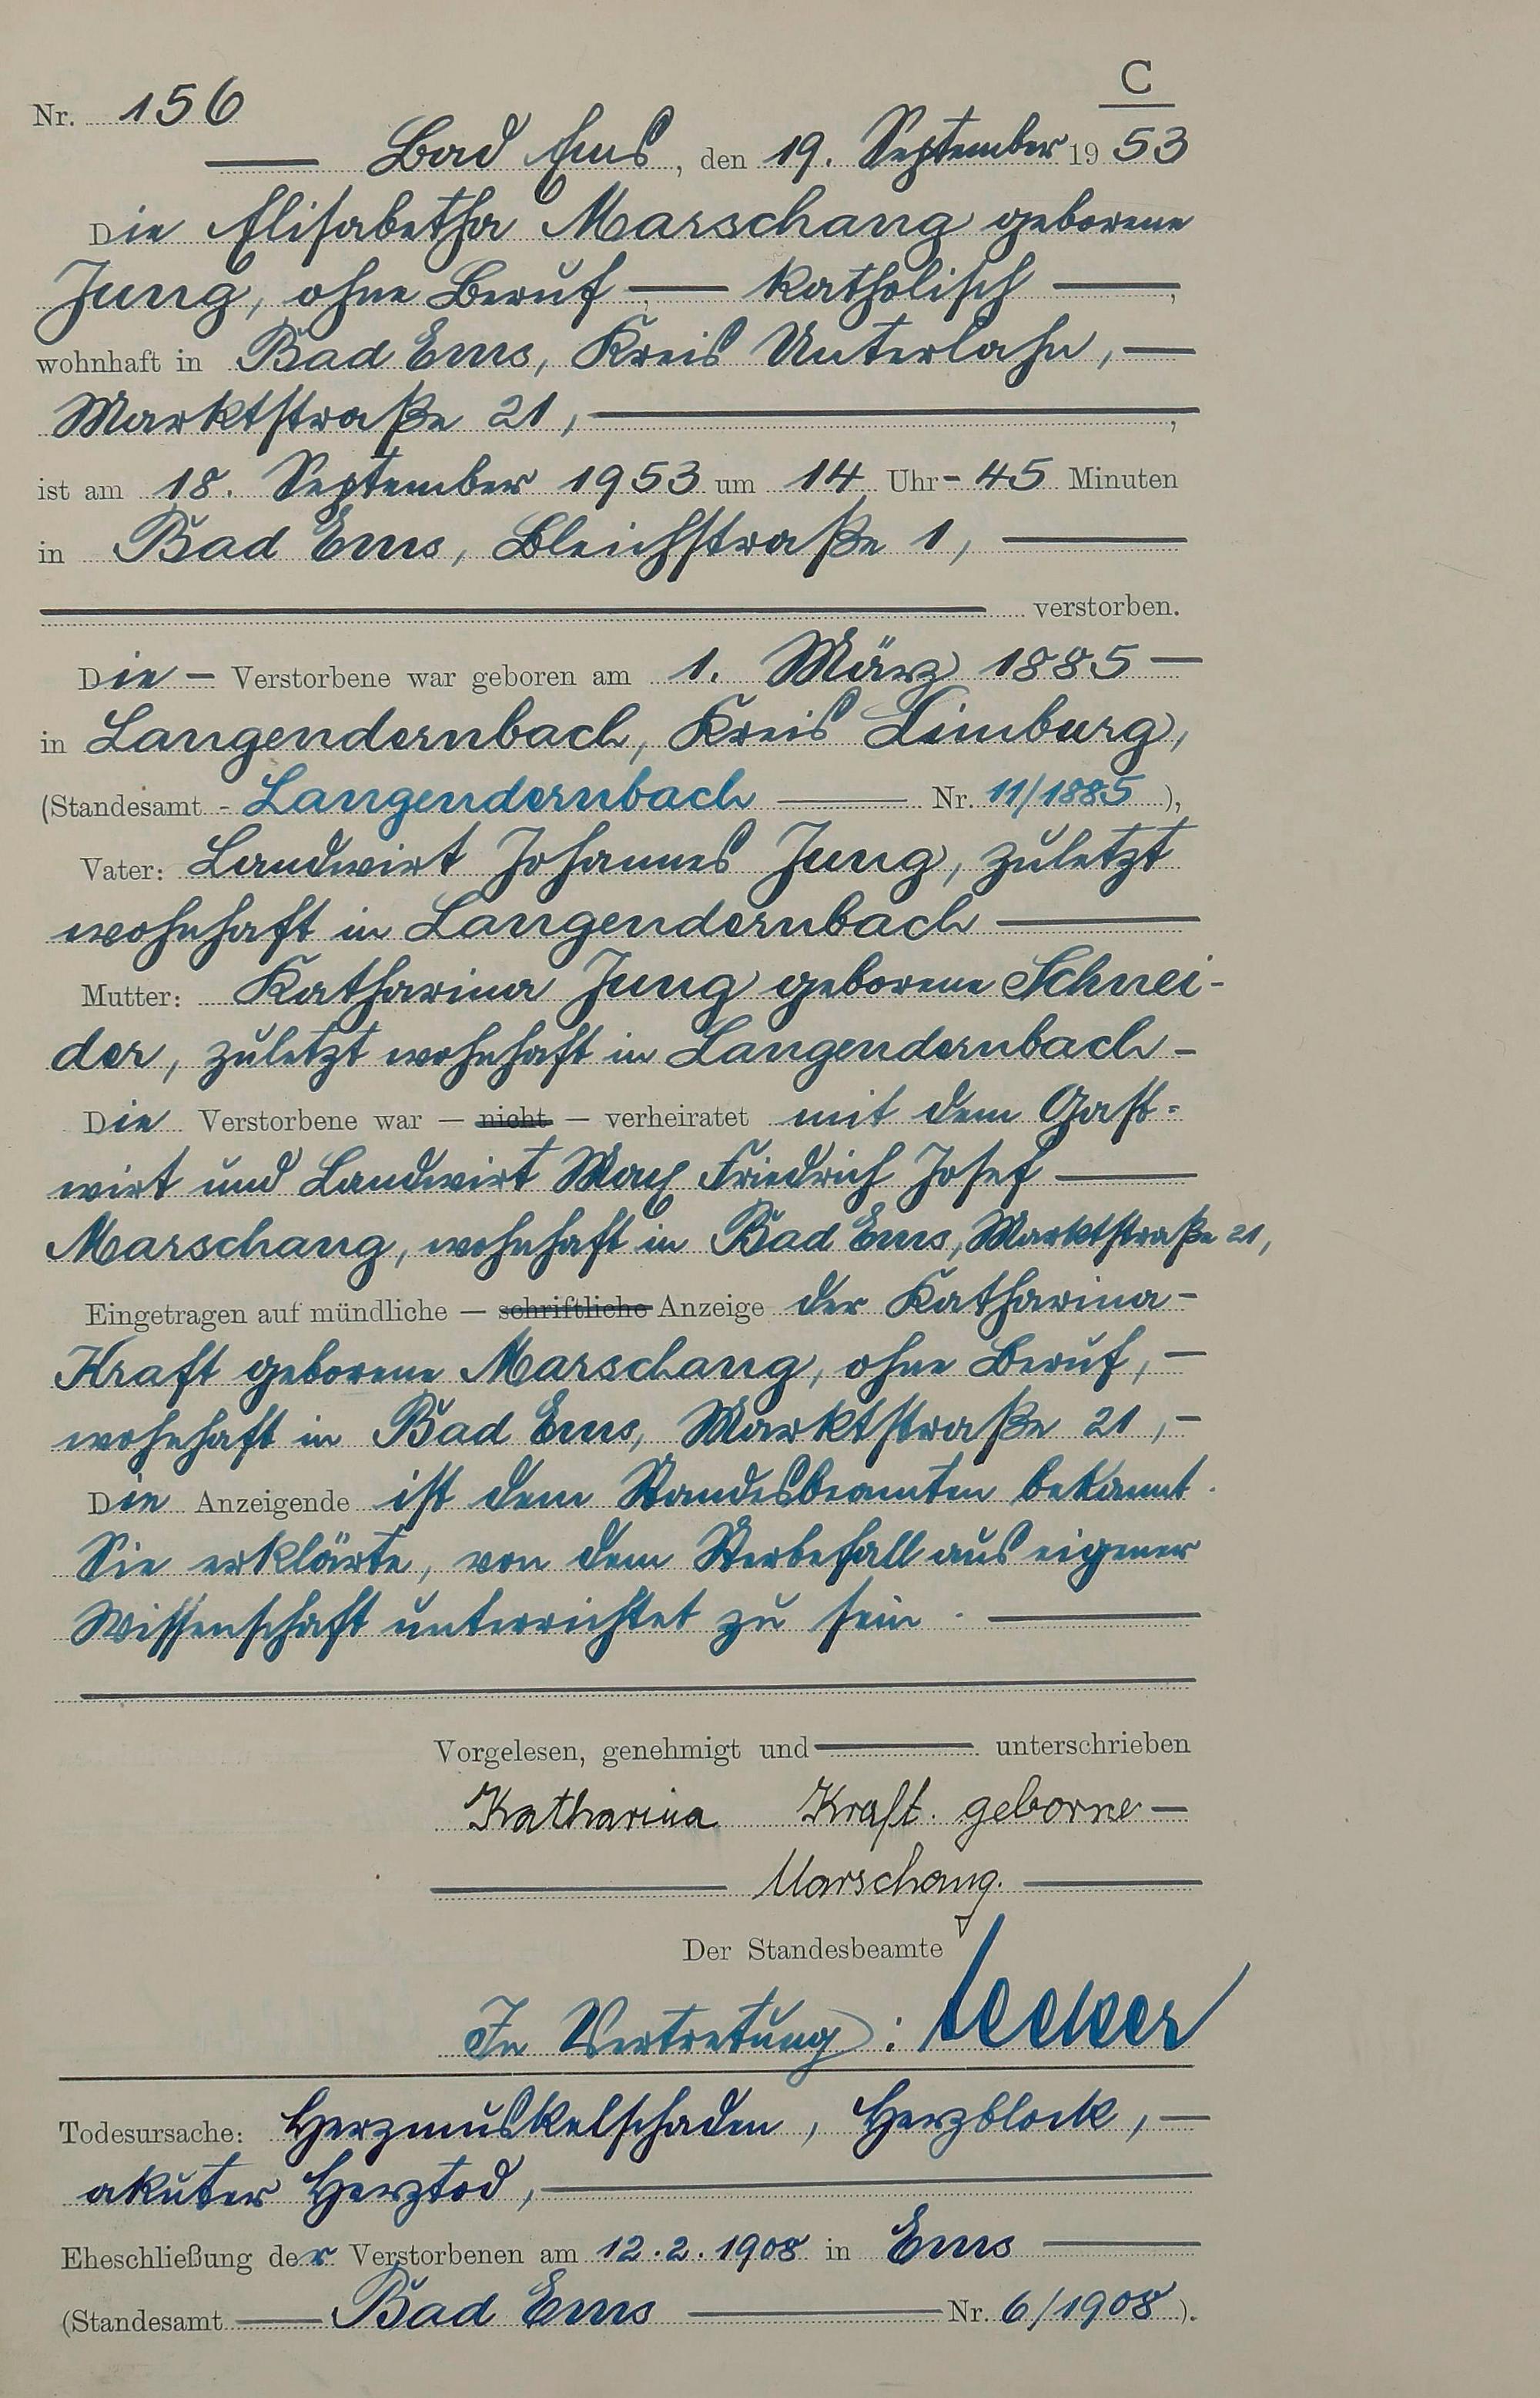 C
Nr. 156
Bad Ems, den 19. September 1953
Die Elisabetha Marschang geborene
Jung, ohne Beruf — katholisch —,
wohnhaft in Bad Ems, Kreis Unterlahn, —
Marktstraße 21, —,
ist am 18. September 1953 um 14 Uhr - 45 Minuten
in Bad Ems, Bleichstraße 1, —
verstorben.
Die - Verstorbene war geboren am 1. März 1885 —
in Langendernbach, Kreis Limburg,
(Standesamt - Langendernbach — Nr. 11/1885),
Vater: Landwirt Johannes Jung, zuletzt
wohnhaft in Langendernbach —
Mutter: Katharina Jung geborene Schnei-
der, zuletzt wohnhaft in Langendernbach -
Die Verstorbene war — nicht — verheiratet mit dem Gast-
wirt und Landwirt Max Friedrich Josef —
Marschang, wohnhaft in Bad Ems, Marktstraße 21,
Eingetragen auf mündliche — schriftliche Anzeige der Katharina -
Kraft geborene Marschang, ohne Beruf, —
wohnhaft in Bad Ems, Marktstraße 21, -
Die Anzeigende ist dem Standesbeamten bekannt.
Sie erklärte, von dem Sterbefall aus eigener
Wissenschaft unterrichtet zu sein. —
Vorgelesen, genehmigt und — unterschrieben
Katharina Kraft. geborne —
— Marschang. —
Der Standesbeamte
In Vertretung:
Todesursache: Herzmuskelschaden, Herzblock, —
akuter Herztod, —
Eheschließung der Verstorbenen am 12.2.1908 in Ems —
(Standesamt — Bad Ems — Nr. 6/1908).